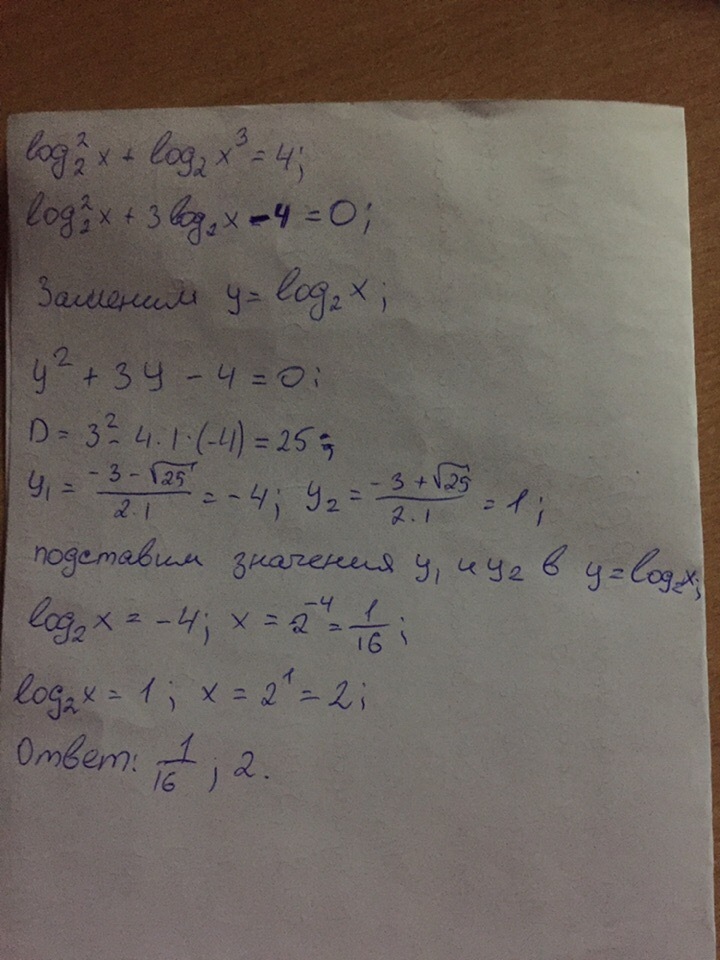 log₂² x + log₂ x³ = 4;
log₂² x + 3 log₂ x - 4 = 0;
Заменим y = log₂ x;
y² + 3y - 4 = 0;
D = 3² - 4·1·(-4) = 25;
y₁ = (-3 - √25)/(2·1) = -4; y₂ = (-3 + √25)/(2·1) = 1;
подставим значения y₁ и y₂ в y = log₂x;
log₂ x = -4; x = 2⁻⁴ = 1/16;
log₂ x = 1; x = 2¹ = 2;
Ответ: 1/16; 2.